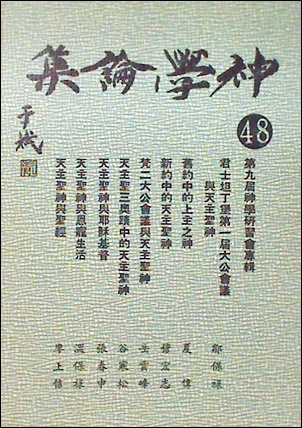 神學論集
于斌
48
第九屆神學研習會專輯
君士坦丁堡第一屆大公會議
與天主聖神
舊約中的上主之神
新約中的天主聖神
梵二大公會議與天主聖神
天主聖三奧蹟中的天主聖神
天主聖神與耶穌基督
天主聖神與恩寵生活
天主聖神與聖經
鄒保祿
夏偉
穆宏志
岳雲峰
谷寒松
張春申
溫保祿
房志榮